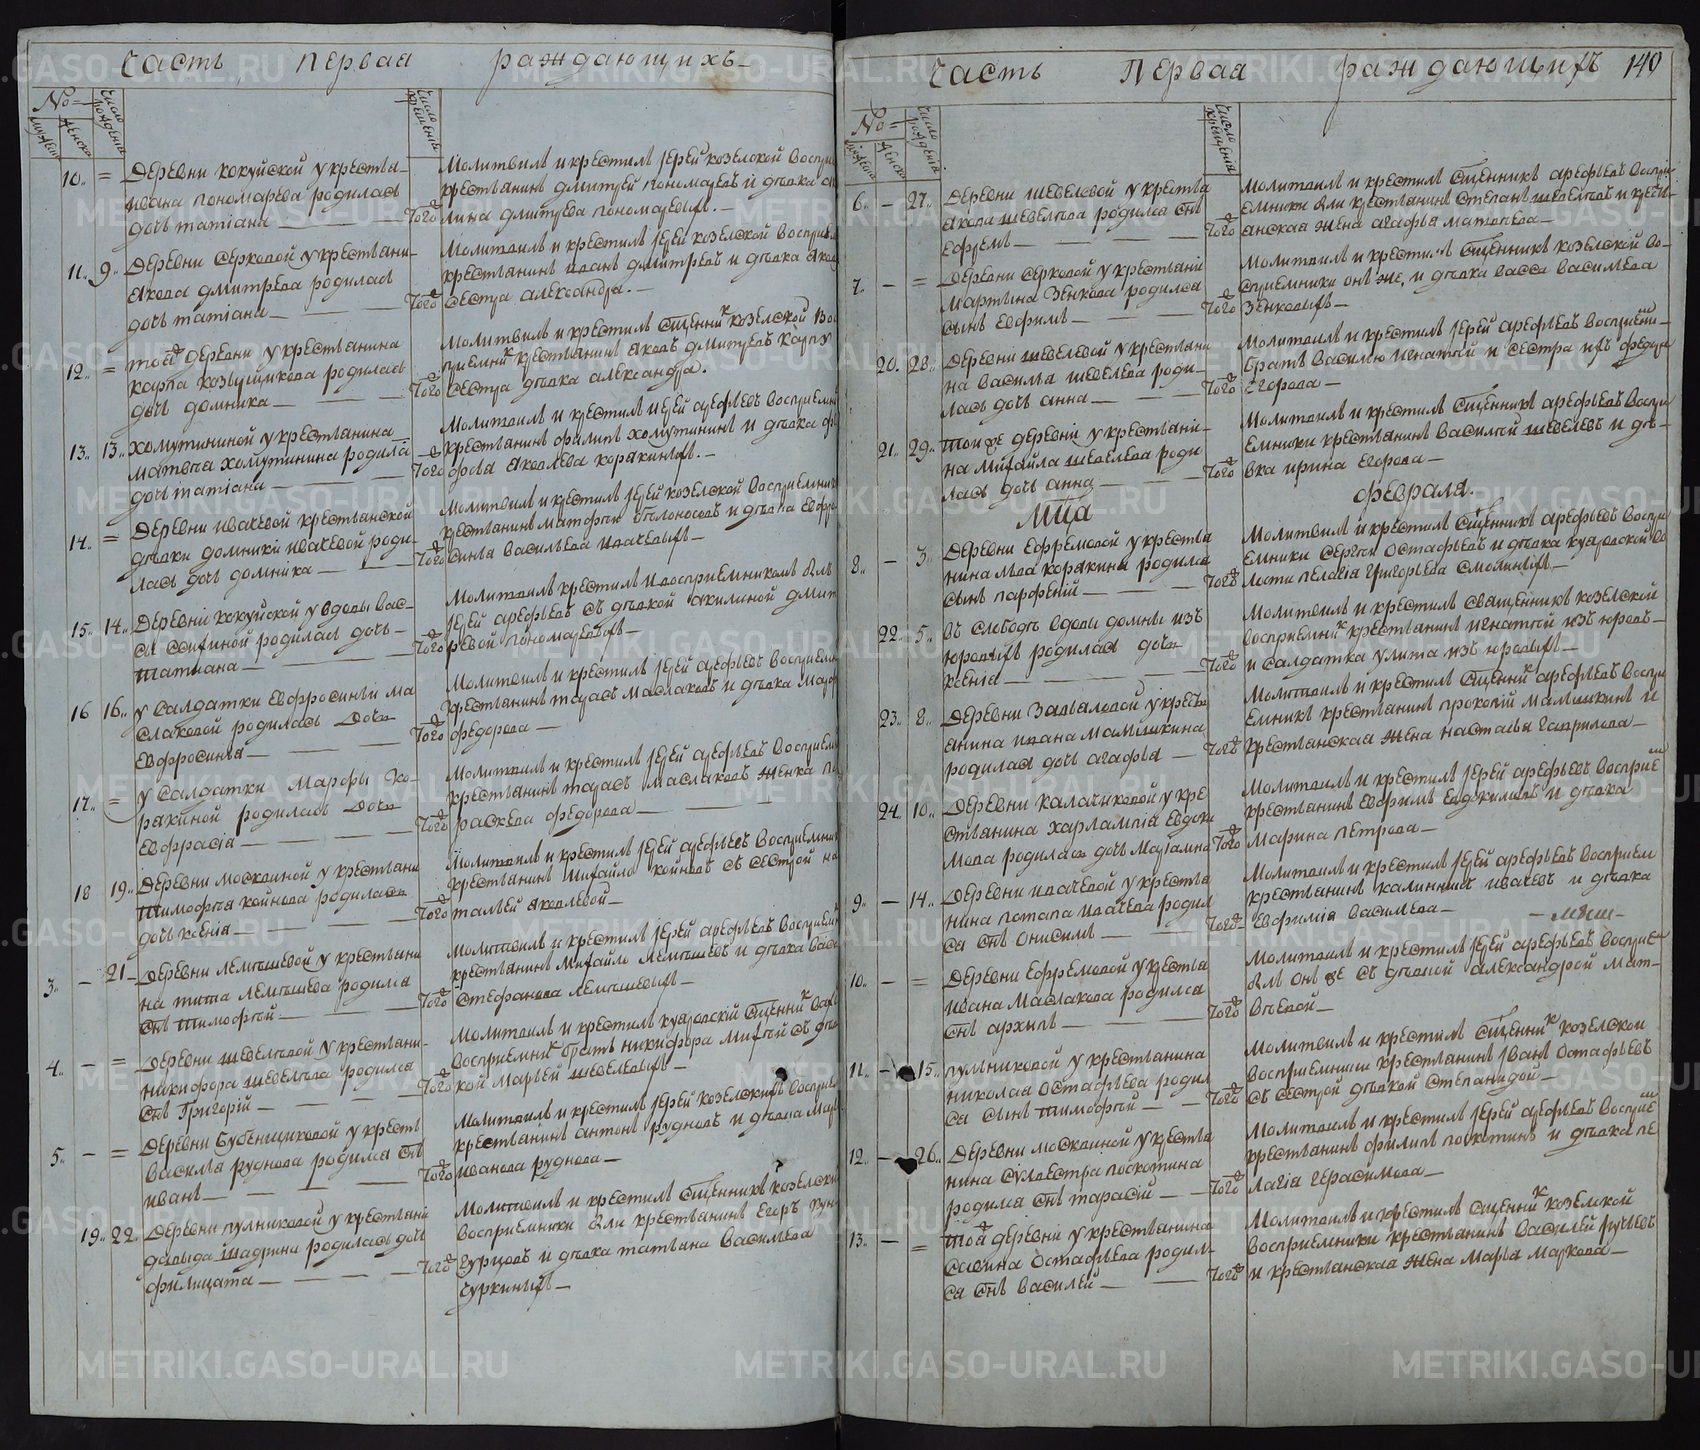 Часть первая раждающихъ
№
Число рожденія
Число крещенія
мужеска
женска
10.. = Деревни кокуйской у крестья-
ивана пономарева родилась
дочь татіана
Того
Молитвилъ и крестилъ іерей козелской воспри
крестьянинъ дмитрей пономаревъ и дѣвка
лина дмитрева пономаревыхъ.
11.. 9.. Деревни серковой у крестьяни-
якова дмитрева родилась
дочь татіана
Того
Молитвилъ и крестилъ іерей козелской восприе
крестьянинъ иванъ дмитревъ и дѣвка яков
сестра александра.
12.. = той деревни у крестьянина
карпа родилась
дочь домника
Того
Молитвилъ и крестилъ сщенник козелской во
приемник крестьянинъ яковъ дмитревъ карпу
сестра дѣвка александра.
13.. 13.. хомутининой у крестьянина
матвѣа хомутинина родила
дочь татіана
Того
Молитвилъ и крестилъ іерей арефьевъ восприемни
крестьянинъ филипъ хомутининъ и дѣвка
яковлева корякиныхъ.
14.. = Деревни ивачевой крестьянской
дѣвки домники ивачевой роди-
лась дочь домника
Того
Молитвилъ и крестилъ іерей козелской восприемни
крестьянинъ матфѣй бѣлоносовъ и дѣвка евфро
синья васильева ивачевыхъ
15.. 14.. Деревни кокуйской у вдовы вас-
сы родилась дочь
татиана
Того
Молитвилъ крестилъ и восприемникомъ былъ
іерей арефьевъ съ дѣвкой акилиной дмит
ревой пономаревыхъ
16 16.. у салдатки евфросиньи ма
слаковой родилась дочь
евфросинья
Того
Молитвилъ и крестилъ іерей арефьевъ восприем
крестьянинъ тарасъ маслаковъ и дѣвка мар
федорова
17.. = у салдатки марфы ко-
ракиной родилась дочь
евфрасіа
Того
Молитвилъ и крестилъ іерей арефьевъ восприем
крестьянинъ тарасъ маслаковъ женка па
раскева федорова
18 19.. Деревни москвиной у крестьяни
тимофѣа койнова родилась
дочь ксеніа
Того
Молитвилъ и крестилъ іерей арефьевъ восприемни
крестьянинъ михайло койновъ съ сестрой на
тальей яковлевой
3.. - 21- Деревни лемѣшевой у крестьяни
на тита лемѣшева родился
снъ тимофѣй
Того
Молитвилъ и крестилъ іерей арефьевъ восприемн
крестьянинъ михайло лемѣшевъ и дѣвка васи
стефанова лемѣшевыхъ
4.. - = Деревни шевелевой у крестьяни-
никифора шевелѣва родился
снъ григорій
Того
Молитвилъ и крестилъ куяровскій сщенник
восприемник братъ никифора съ дѣв
кой марьей шевелевыхъ
5.. - = Деревни бубенщиковой у крест
василья руднова родился снъ
иванъ
Того
Молитвилъ и крестилъ іерей козелскихъ воспри
крестьянинъ антонъ рудновъ и дѣвка мар
иванова руднова
19.. 22.. Деревни пулниковой у крестьяни
давыда шадрина родилась дочь
филицата
Того
Молитвилъ и крестилъ сщенникъ козелской
восприемники были крестьянинъ егоръ
бурцовъ и дѣвка татьяна васильева
чуркиныхъ
Часть Первая раждающихъ 140
№
Число рожденія
Число крещенія
мужеска
женска
6.. - 27.. Деревни шевелевой у крестья
якова шевелѣва родился снъ
ефремъ
Того
Молитвилъ и крестилъ сщенникъ арефьевъ воспри
емники были крестьянинъ степанъ шевелѣвъ и кресть
янская жена агафья матвѣева
7.. - = Деревни серковой у крестьяни
мартына зенкова родился
сынъ евфимъ
Того
Молитвилъ и крестилъ сщенникъ козелской во-
сприемники онъ же, и дѣвка васса васильева
зенковыхъ
20. 28.. Деревни шевелевой у крестьяни
на василья шевелева роди-
лась дочь анна
Того
Молитвилъ и крестилъ іерей арефьевъ восприем-
братъ василью игнатій и сестра ихъ федора
егорова
21.. 29.. той же деревни у крестьяни-
на михайла шевелева роди
лась дочь анна
Того
Молитвилъ и крестилъ сщенникъ арефьевъ воспри
емники крестьянинъ василій шевелевъ и дѣ-
вка ирина егорова
мца февраля.
8.. - 3.. Деревни ефремовой у крестья
нина льва корякина родился
сынъ парфеній
Того
Молитвилъ и крестилъ сщенникъ арефьевъ воспри
емники сергѣй остафьевъ и дѣвка куяровской во
лости пелагіа григорьева смолиныхъ
22. 5.. въ слободѣ вдовы домны изъ
юровыхъ родилась дочь
ксеніа
Того
Молитвилъ и крестилъ священникъ козелской
восприемник крестьянинъ игнатій изъ юровъ-
и салдатка улита изъ юровыхъ
23.. 8.. Деревни завьяловой у кресть
янина ивана мамышкина
родилась дочь агафья
Того
Молитвилъ и крестилъ сщенник арефьевъ воспри
емникъ крестьянинъ прокопій мамышкинъ и
крестьянская жена настасья гаврилова
24.. 10.. Деревни калачиковой у кре
стьянина харлампіа евдоки
мова родилась дочь марьямна
Того
Молитвилъ и крестилъ іерей арефьевъ восприем
крестьянинъ евфимъ евдокимовъ и дѣвка
марина петрова
9.. - 14.. Деревни ивачевой у крестья
нина потапа ивачева родил
ся снъ онисимъ
Того
Молитвилъ и крестилъ іерей арефьевъ восприем
крестьянинъ калинникъ ивачевъ и дѣвка
евфиміа васильева
10.. - = Деревни ефремовой у крестья
ивана маслакова родился
снъ архипъ
Того
Молитвилъ и крестилъ іерей арефьевъ восприем
былъ онъ же съ дѣвкой александрой мат-
вѣевой
11.. - 15.. пульниковой у крестьянина
николая остафьева родил
ся сынъ тимофѣй
Того
Молитвилъ и крестилъ сщенник козелской
восприемники крестьянинъ іванъ остафьевъ
съ сестрой дѣвкой степанидой
12.. - 26.. Деревни москвиной у крестья
нина сулвестра поскотина
родился снъ тарасій
Того
Молитвилъ и крестилъ іерей арефьевъ восприем
крестьянинъ филипъ поскотинъ и дѣвка пе
лагіа герасимова
13.. - = той деревни у крестьянина
саввина остафьева родил-
ся снъ василей
Того
Молитвилъ и крестилъ сщенник козелской
восприемники крестьянинъ василей ручьевъ
и крестьянская жена марья маркова
METRIKI.GASO-URAL.RU